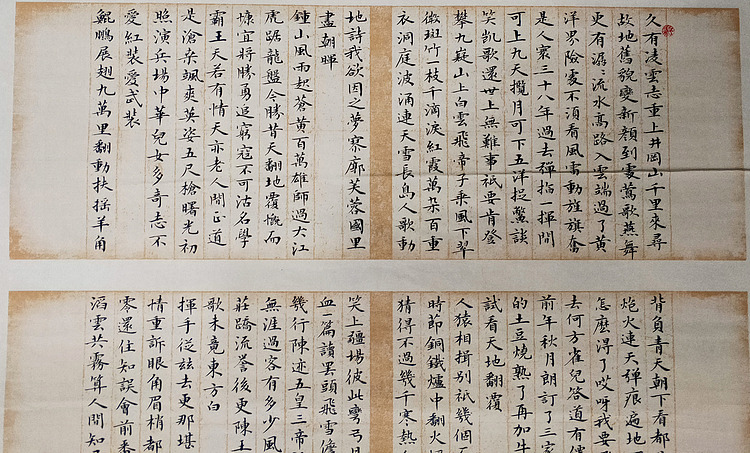 久有凌雲志重上井岡山千里來尋
故地舊貌變新顏到處鶯歌燕舞
更有潺〻流水高路入雲端過了黃
洋界險處不須看風雷動旌旗奮
是人寰三十八年過去彈指一揮間
可上九天攬月可下五洋捉鱉談
笑凱歌還世上無難事祇要肯登
攀九嶷山上白雲飛帝子乘風下翠
微斑竹一枝千滴淚紅霞萬朵百重
衣洞庭波涌連天雪長島人歌動
地詩我欲因之夢寥廓芙蓉國里
盡朝暉
鍾山風雨起蒼黃百萬雄師過大江
虎踞龍盤今勝昔天翻地覆慨而
慷宜將勝勇追窮寇不可沽名學
霸王天若有情天亦老人間正道
是滄桑颯爽英姿五尺槍曙光初
照演兵場中華兒女多奇志不
愛紅裝愛武裝
鯤鵬展翅九萬里翻動扶搖羊角
背負青天朝下看都
炮火連天彈痕遍地
怎麼得了哎呀我要
去何方雀兒答道有
前年秋月朗訂了三家
的土豆燒熟了再加牛
試看天地翻覆
人猿相揖別祇幾個
時節銅鐵爐中翻火
猜得不過幾千寒熱
笑上疆場彼此彎弓月
血一篇讀罷頭飛雪
幾行陳迹五皇三帝
無涯過客有多少風
莊蹻流譽後更陳王
歌未竟東方白
揮手從茲去更那堪
情重訴眼角眉梢都
零還住知誤會前番
滔雲共霧算人間知